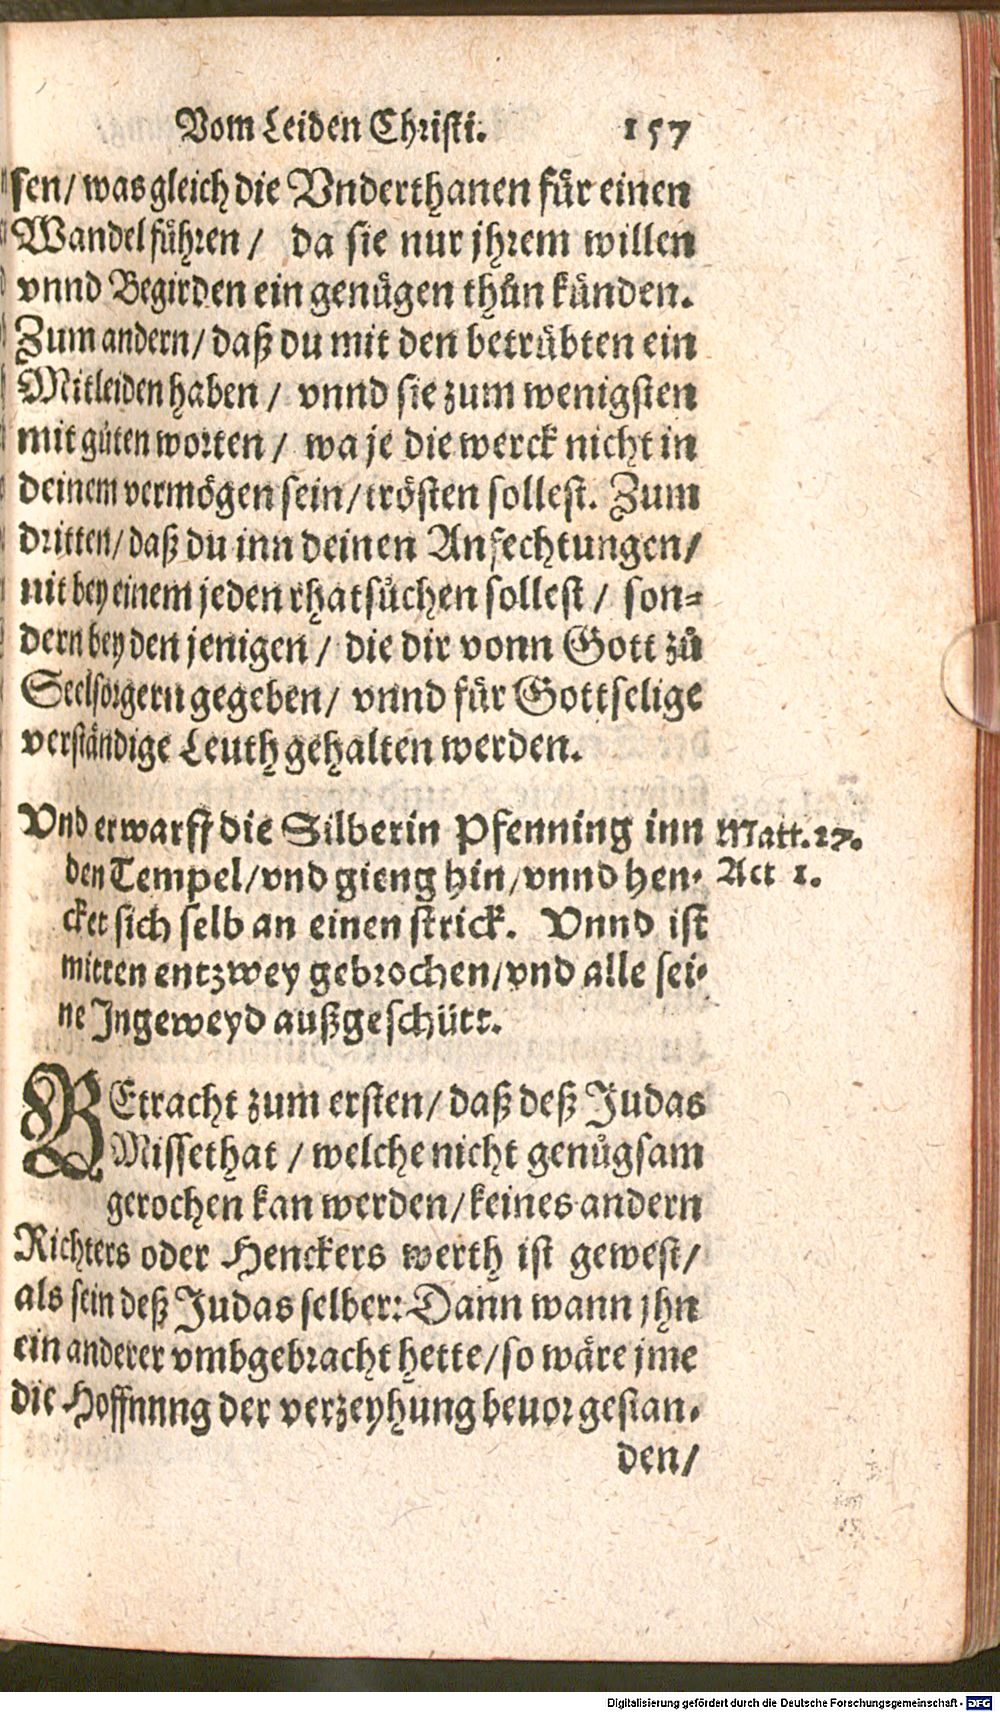 Vom Leiden Christi. 157
sen/ was gleich die Vnderthanen für einen
Wandel führen/ da sie nur jhrem willen
vnnd Begirden ein genügen thůn künden.
Zum andern/ daß du mit den betrübten ein
Mitleiden haben/ vnnd sie zum wenigsten
mit gůten worten/ wa je die werck nicht in
deinem vermögen sein/ trösten sollest. Zum
dritten/ daß du inn deinen Anfechtungen/
nit bey einem jeden rhat sůchen sollest/ son=
dern bey den jenigen/ die dir vonn Gott zů
Seelsorgern gegeben/ vnnd für Gottselige
verständige Leuth gehalten werden.
Vnd er warff die Silberin Pfenning inn
den Tempel/ vnd gieng hin/ vnnd hen-
cket sich selb an einen strick. Vnnd ist
mitten entzwey gebrochen/ vnd alle sei-
ne Ingeweyd außgeschütt.
Matt. 27.
Act 1.
BEtracht zum ersten/ daß deß Judas
Missethat/ welche nicht genůgsam
gerochen kan werden/ keines andern
Richters oder Henckers werth ist gewest/
als sein deß Judas selber: Dann wann jhn
ein anderer vmbgebracht hette/ so wäre jme
die Hoffnnng der verzeyhung beuor gestan-
den/
Digitalisierung gefördert durch die Deutsche Forschungsgemeinschaft - DFG